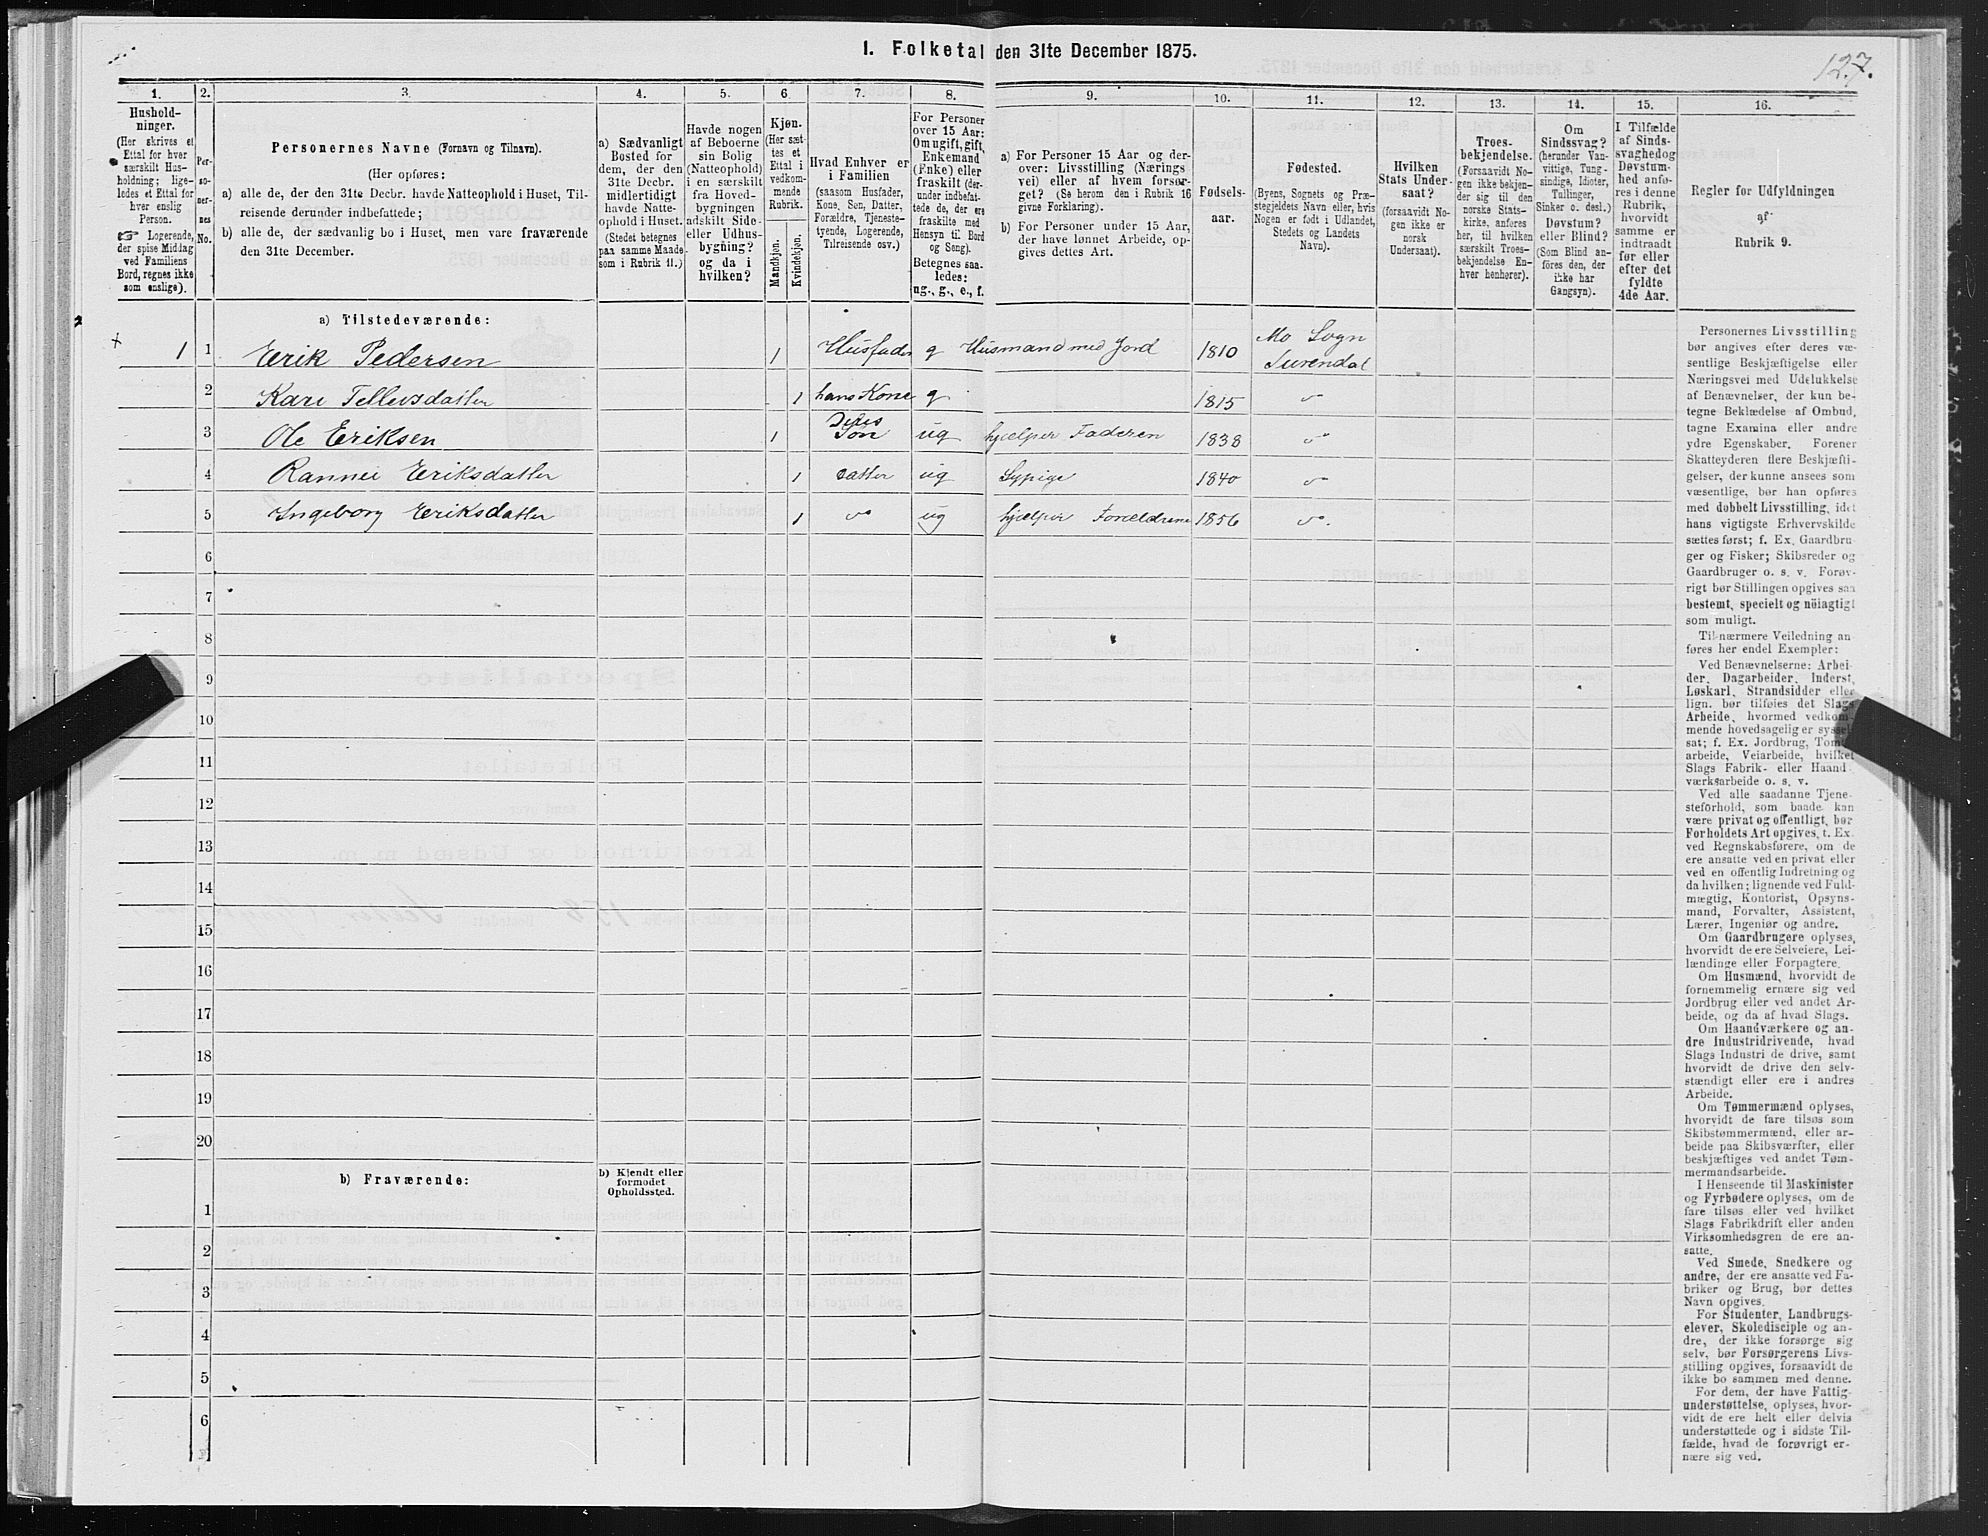 1. Folketal den 31te December 1875.
127.
1.
2.
3.
4.
5.
6.
7.
8.
9.
10.
11.
12.
13.
14.
15.
16.
Hushold-
ninger.
(Her skrives et
Ettal for hver
særskilt Hus-
holdning; lige-
ledes et Ettal for
hver enslig
Person.
☞ Logerende,
der spise Middag
ved Familiens
Bord, regnes ikke
som enslige).
Per-
so-
ner-
nes
No.
Personernes Navne (Fornavn og Tilnavn).
(Her opføres:
a) alle de, der den 31te Decbr. havde Natteophold i Huset, Til-
reisende derunder indbefattede;
b) alle de, der sædvanlig bo i Huset, men vare fraværende
den 31te December.
a) Sædvanligt
Bosted for
dem, der den
31te Decbr.
midlertidigt
havde Natte-
ophold i Huset.
(Stedet betegnes
paa samme Maade
som i Rubrik 11.)
Havde nogen
af Beboerne
sin Bolig
(Natteophold)
i en særskilt
fra Hoved-
bygningen
adskilt Side-
eller Udhus-
bygning?
og da i
hvilken?
Kjøn.
(Her sæt-
tes et
Ettal i
vedkom-
mende
Rubrik.
Mandkjøn.
Kvindekjøn.
Hvad Enhver er
i Familien
(saasom Husfader,
Kone, Søn, Datter,
Forældre, Tjeneste-
tyende, Logerende,
Tilreisende osv.)
For Personer
over 15 Aar:
Om ugift, gift,
Enkemand
(Enke) eller
fraskilt (der-
under indbefat-
tede de, der ere
fraskilte med
Hensyn til Bord
og Seng).
Betegnes saa-
ledes:
ug., g., e., f.
a) For Personer 15 Aar og der-
over: Livsstilling (Nærings
vei) eller af hvem forsør-
get? (Se herom den i Rubrik 16
givne Forklaring).
b) For Personer under 15 Aar,
der have lønnet Arbeide, op-
gives dettes Art.
Fødsels-
aar.
Fødested.
(Byens, Sognets og Præ-
stegjeldets Navn eller, hvis
Nogen er født i Udlandet,
Stedets og Landets
Navn).
Hvilken
Stats Under-
saat?
(forsaavidt No-
gen ikke er
norsk
Undersaat).
Troes-
bekjendelse.
(Forsaavidt No-
gen ikke bekjen-
der sig til den
norske Stats-
kirke, anføres
her, til hvilken
særskilt Troes-
bekjendelse En-
hver henhører).
Om
Sindssvag?
(herunder Van-
vittige, Tung-
sindige, Idioter,
Tullinger,
Sinker o. desl.)
Døvstum?
eller Blind?
(Som Blind an-
føres den, der
ikke har
Gangsyn).
I Tilfælde
af Sinds-
svaghed og
Døvstum-
hed anfø-
res i denne
Rubrik,
hvorvidt
samme er
indtraadt
før eller
efter det
fyldte
4de Aar.
Regler for Udfyldningen
af
Rubrik 9.
a) Tilstedeværende:
+ 1 1 Erik Pedersen 1 Husfader g Husmand med Jord 1810 Mo Sogn
Surendal
2 Kari Tellevsdatter 1 hans Kone g 1815 "
3 Ole Eriksen 1 Deres
Søn ug hjælper Faderen 1838 "
4 Rannei Eriksdatter 1 Datter ug Sypige 1840 "
5 Ingeborg Eriksdatter 1 " ug hjælper Forældrene 1856 "
6
7
8
9
10
11
12
13
14
15
16
17
18
19
20
b) Fraværende:
b) Kjendt eller
formodet
Opholdssted.
1
2
3
4
5
6
Personernes Livsstilling
bør angives efter deres væ-
sentlige Beskjæftigelse eller
Næringsvei med Udelukkelse
af Benævnelser, der kun be-
tegne Beklædelse af Ombud,
tagne Examina eller andre
ydre Egenskaber. Forener
Skatteyderen flere Beskjæfti-
gelser, der kunne ansees som
væsentlige, bør han opføres
med dobbelt Livsstilling, idet
hans vigtigste Erhvervskilde
sættes først; f. Ex. Gaardbru-
ger og Fisker; Skibsreder og
Gaardbruger o. s. v. Forøv-
rigt bør Stillingen opgives saa
bestemt, specielt og nöiagtigt
som muligt.
Til nærmere Veiledning an
føres her endel Exempler:
Ved Benævnelserne: Arbei-
der, Dagarbeider, Inderst,
Løskarl, Strandsidder eller
lign. bør tilføies det Slags
Arbeide, hvormed vedkom-
mende hovedsagelig er syssel-
sat; f. Ex. Jordbrug, Tomte-
arbeide, Veiarbeide, hvilket
Slags Fabrik- eller Haand-
værksarbeide o. s. v.
Ved alle saadanne Tjene-
steforhold, som baade kan
være privat og offentligt, bør
Forholdets Art opgives, t. Ex.
ved Regnskabsførere, om de
ere ansatte ved en privat eller
ved en offentlig Indretning og
da hvilken; lignende ved Fuld-
mægtig, Kontorist, Opsyns-
mand, Forvalter, Assistent,
Lærer, Ingeniør og andre.
Om Gaardbrugere oplyses,
hvorvidt de ere Selveiere, Lei-
lændinge eller Forpagtere.
Om Husmænd, hvorvidt de
fornemmelig ernære sig ved
Jordbrug eller ved andet Ar-
beide, og da af hvad Slags.
Om Haandværkere og an-
dre Industridrivende, hvad
Slags Industri de drive, samt
hvorvidt de drive den selv-
stændigt eller ere i andres
Arbeide.
Om Tømmermænd oplyses,
hvorvidt de fare tilsøs som
Skibstømmermænd, eller ar-
beide paa Skibsværfter, eller
beskjæftiges ved andet Tøm-
mermandsarbeide.
I Henseende til Maskinister
og Fyrbødere oplyses, om de
fare tilsøs eller ved hvilket
Slags Fabrikdrift eller anden
Virksomhedsgren de ere an-
satte.
Ved Smede, Snedkere og
andre, der ere ansatte ved Fa-
briker og Brug, bør dettes
Navn opgives.
For Studenter, Landbrugs-
elever, Skoledisciple og an-
dre, der ikke forsørge sig
selv, bør Forsørgerens Livs-
stilling opgives, forsaavidt de
ikke bo sammen med denne.
For dem, der have Fattig-
understøttelse, oplyses, hvor-
vidt de ere helt eller delvis
understøttede og i sidste Til-
fælde, hvad de forøvrigt er-
nære sig ved.